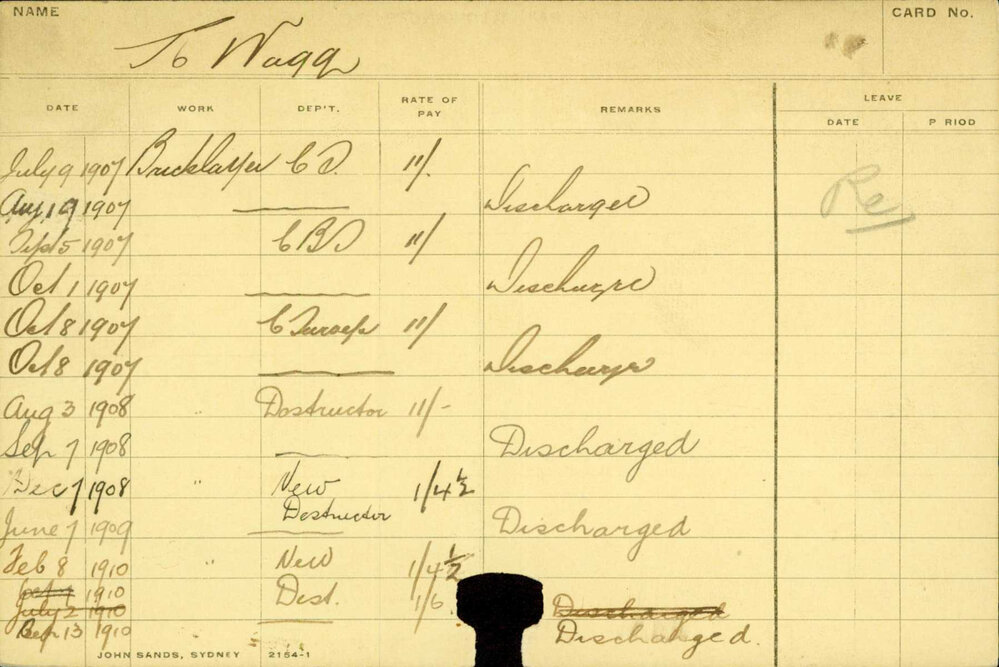 NAME CARD No.
Wagg
LEAVE
DATE WORK DEP'T. RATE OF PAY REMARKS DATE P RIOD
July 9 1907 Bricklayer 11/. Re
Aug 19 1907 Discharged
Sept 5 1907 11/
Oct 1 1907 Discharge
Oct 8 1907 11/
Oct 8 1907 Discharge
Aug 3 1908 " Destructor 11/-
Sep 7 1908 Discharged
Dec 7 1908 " New Destructor 1/4½
June 7 1909 Discharged
Feb 8 1910 " New 1/4½
1910 Dest. 1/6
July 2 1910 Discharged
Sep 13 1910 Discharged.
JOHN SANDS, SYDNEY 2154-1